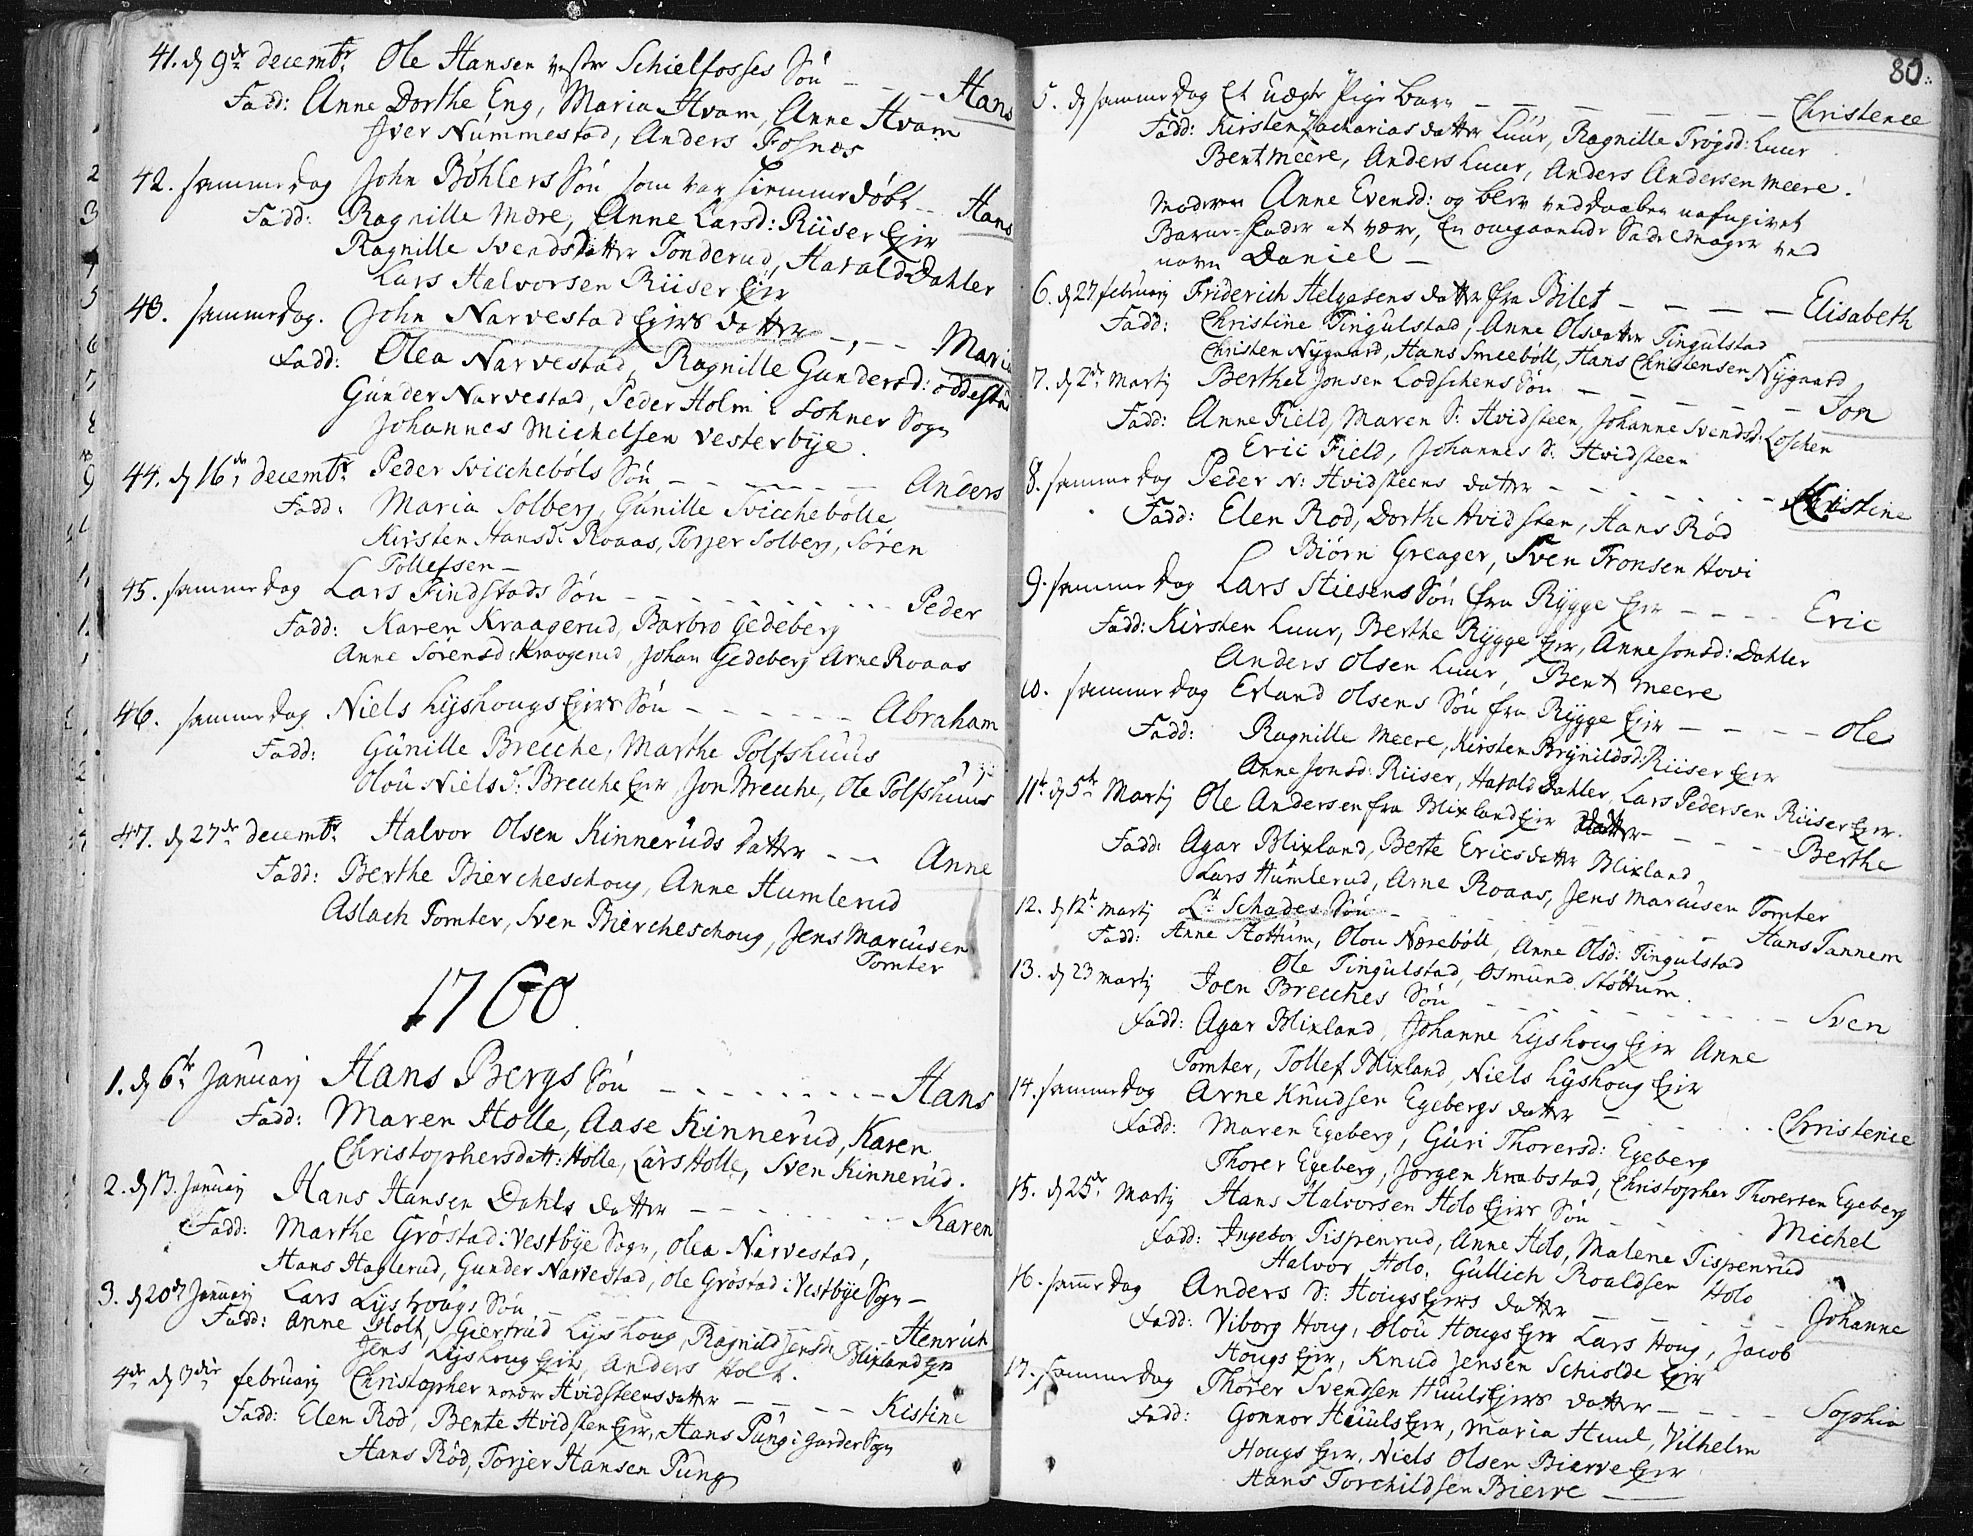 41. d 9de decembr Ole Hansen vestre Schielfosses Sön - - - Hans
Fadd: Anne Dorthe Eng, Maria Hvam, Anne Hvam
Jver Nümmestad, Anders Fosnæs
42. samme dag John Böhlers Sön som var hiemme döbt - Hans
Fadd: Ragnille Mære, Anne Larsd: Riiser Ejer
Ragnille Svendsdatter Tonderud, Harald Dahler
Lars Halvorsen Riiser Ejer
43. samme dag. John Narvestad Ejers datter - - - Maria
Fadd: Olea Narvestad, Ragnille Gundersd: oddestad
Gunder Narvestad, Peder Holm i Sohner Sogn
Johannes Michelsen Vesterbye.
44. d 16de decembr Peder Svicchebøls Sön - - - - - - Anders
Fadd: Maria Solberg, Gunille Svicchebölle
Kirsten Hansd: Roaas, Torjer Solberg, Sören
Tollefsen -
45. samme dag Lars Findstads Sön - - - - - - Peder
Fadd: Karen Kraagerud, Barbro Gedeberg
Anne Sörensd: Kraagerud, Johan Gedeberg Arne Roaas
46. samme dag Niels Lyshougs Ejers Sön - - - - - - Abraham
Fadd: Günille Brecche, Marthe Tolfshuus
Olou Nielsd: Brecche Ejer, Jon Brecche, Ole Tolfshuus
47. d 27de decembr Halvor Olsen Kinneruds datter - - - Anne
Fadd: Berthe Biercheschoug, Anne Humlerud
Aslach Tomter, Sven Biercheschoug, Jens Marcusen
Tomter
1760.
1. d 6te Januarj Hans Bergs Sön - - - - - - - Hans
Fadd: Maren Holle, Aase Kinnerud, Karen
Christophersdatt: Holle, Lars Holle, Sven Kinnerud.
2. d 13. Januarj Hans Hansen Dahls datter - - - - - - Karen
Fadd: Marthe Gröstad i Vestbye Sogn, Olea Narvestad,
Hans Haglerud, Gunder Narvestad, Ole Gröstad i Vestbye Sogn -
3. d 20de Januarj Lars Lyshougs Sön - - - - - - Henrich
Fadd: Anne Holt, Giertrud Lyshoug, Ragnild Jensd: Blixland Ejer
Jens Lyshoug Ejer, Anders Holt.
4de d 3die februarj Christopher nordre Hvidsteens datter - - - - Kistine
Fadd: Elen Rod, Bente Hvidsten Ejer, Hans Pung i Garder Sogn
Hans Röd, Torjer Hansen Pung
80.
5. d samme dag Et uægte Pige barn - - - - - - Christence
Fadd: Kirsten Zacharias datter Luur, Ragnille Trögsd: Luur
Bent Meere, Anders Luur, Anders Andersen Meere.
Moderen Anne Evensd: og blev ved daaben
Barne-fader at være, En omgaaende Sadelmager ved
navn Daniel -
6. d 27 februarj Friderich Helgesens datter fra Bilet - - - - Elisabeth
Fadd: Christine Tingulstad, Anne Olsdatter Tingulstad
Christen Nygaard, Hans Smeeböll, Hans Christensen Nygaard
7. d 2de Martij Berthel Jonsen Lodschens Sön - - - - - - Jon
Fadd: Anne Field, Maren S: Hvidsteen, Johanne Svendsd: Loschen
Eric Field, Johannes S: Hvidsteen
8. samme dag Peder N: Hvidsteens datter - - - - - - Christine
Fadd: Elen Rod, Dorthe Hvidsten, Hans Röd
Biörn Greager, Sven Tronsen Hovi
9. samme dag Lars Stiesens Sön fra Rÿgge Ejer - - - - Eric
Fadd: Kirsten Luur, Berthe Rÿgge Ejer, Anne Jonsd: Dahler
Anders Olsen Luur, Bent Meere
10. samme dag Erland Olsens Sön fra Rÿgge Ejer - - - - Ole
Fadd: Ragnille Meere, Kirsten Brynildsd: Riiser Ejer
Anne Jonsd: Riiser, Harald Dahler, Lars Pedersen Riiser Ejer.
11te d 5te Martij Ole Andersen fra Blixland Ejer datter - - - - - Berthe
Fadd: Agar Blixland, Berte Ericsdatter Blixland,
Lars Humlerud, Arne Roaas, Jens Marcusen Tomter
12. d 12te Martij Lt: Schades Sön - - - - - Hans Tannem
Fadd: Anne Stottum, Olou Nærebøll, Anne Olsd: Tingulstad
Ole Tingulstad, Osmund Stöttum.
13. d 23 Martij Joen Brecches Sön - - - - - - - Sven
Fadd: Agar Blixland, Johanne Lyshoug Ejer Anne
Tomter, Tollef Blixland, Niels Lyshoug Ejer
14. samme dag Arne Knudsen Egebergs datter - - - - - Christence
Fadd: Maren Egeberg, Guri Thorersd: Egeberg
Thorer Egeberg, Jörgen Knabstad, Christopher Thorersen Egeberg
15. d 25de Martij Hans Halvorsen Holo Ejers Sön - - - - Michel
Fadd: Jngebor Tispenrud, Anne Holo, Malene Tispenrud
Halvor Holo, Gullich Roaldsen Holo
16. samme dag Anders S: Hougs Ejers datter - - - - - Johanne
Fadd: Viborg Houg, Olou Hougs Ejer Lars Houg, Jacob
Hougs Ejer, Knud Jensen Schiolde Ejer
17. samme dag Thorer Svendsen Huuls Ejers datter - - - - Sophia
Fadd: Gonnor Huuls Ejer, Maria Huul, Vilhelm
Hougs Ejer, Niels Olsen Bierve Ejer
Hans Torchildsen Bierve -